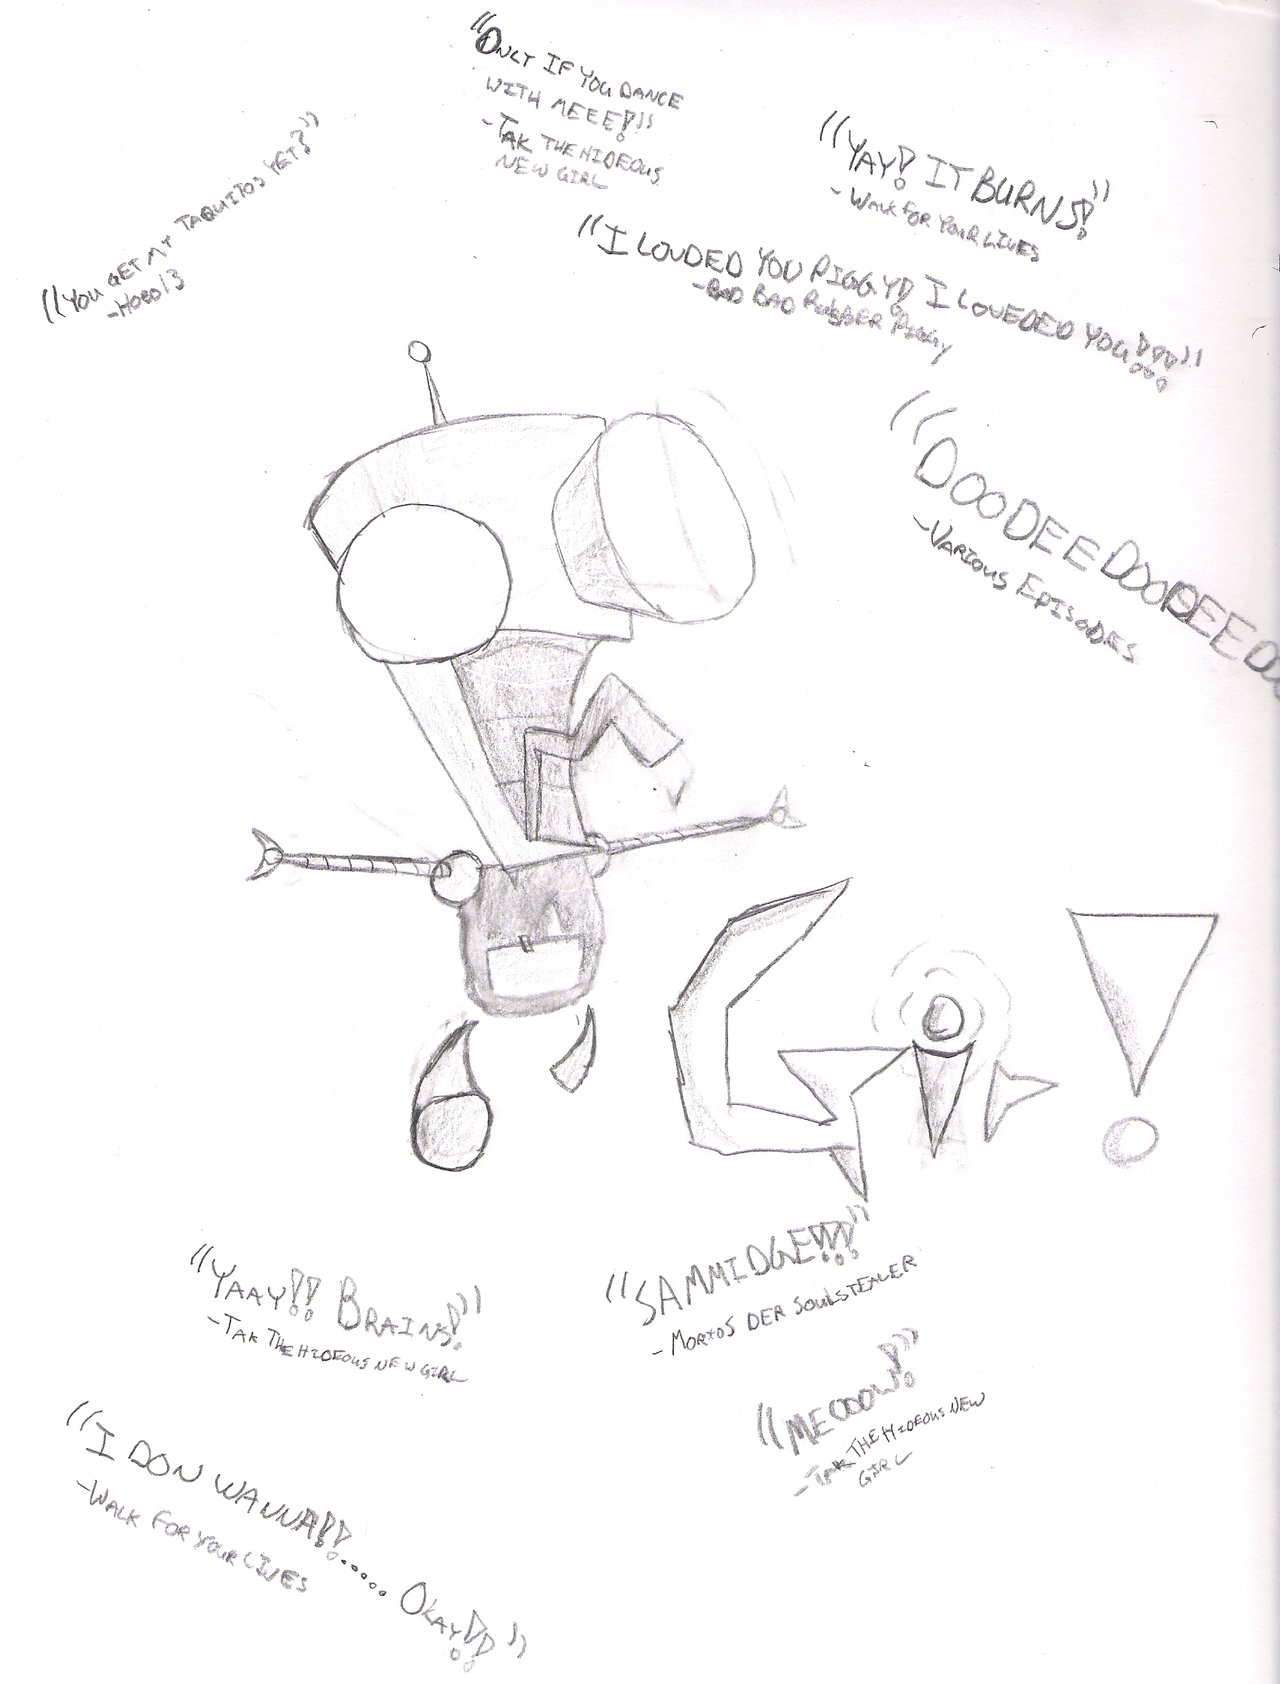 "ONLY IF YOU DANCE
WITH MEEE!"
-TAK THE HIDEOUS
NEW GIRL
"YOU GET MY TAQUITOS YET?"
-HOBO 13
"YAY! IT BURNS!"
-WALK FOR YOUR LIVES
"I LOUDED YOU PIGGY! I LOVEDED YOU!!!"
-BAD BAD RUBBER PIGGY
"DOODEEDOODEEDOO
-VARIOUS EPISODES
GIR!
"YAAY!! BRAINS!"
-TAK THE HIDEOUS NEW GIRL
"SAMMIDGE!!!"
-MORTOS DER SOULSTEALER
"MEOOOW!"
-TAK THE HIDEOUS NEW
GIRL
"I DON WANNA!!..... OKAY!!"
-WALK FOR YOUR LIVES